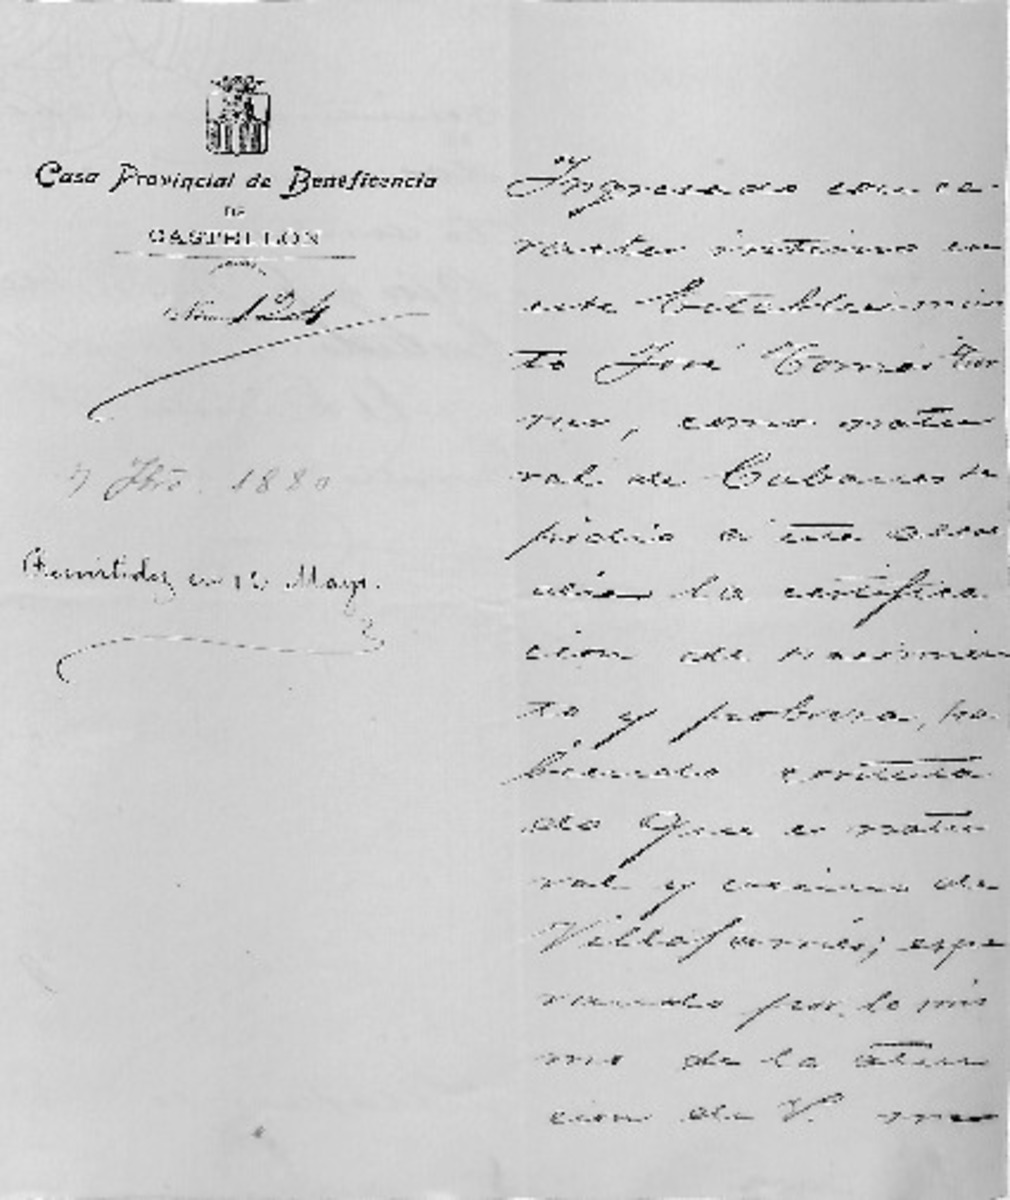 Casa Provincial de Beneficencia
DE
CASTELLÓN
Núm. 124
7 1880
en 12 Mayo.
Ingresado con ca-
racter interino en
este Establecimien
to José Gomez
como natu
ral de Cabanes se
pidió á esta Alcal
dia la certifica
ción de nacimien
to y pobreza, ha
biendo contesta
do que es natu
ral y vecino de
Villafamés; espe
rando por lo mis
mo de la aten
cion de V. me